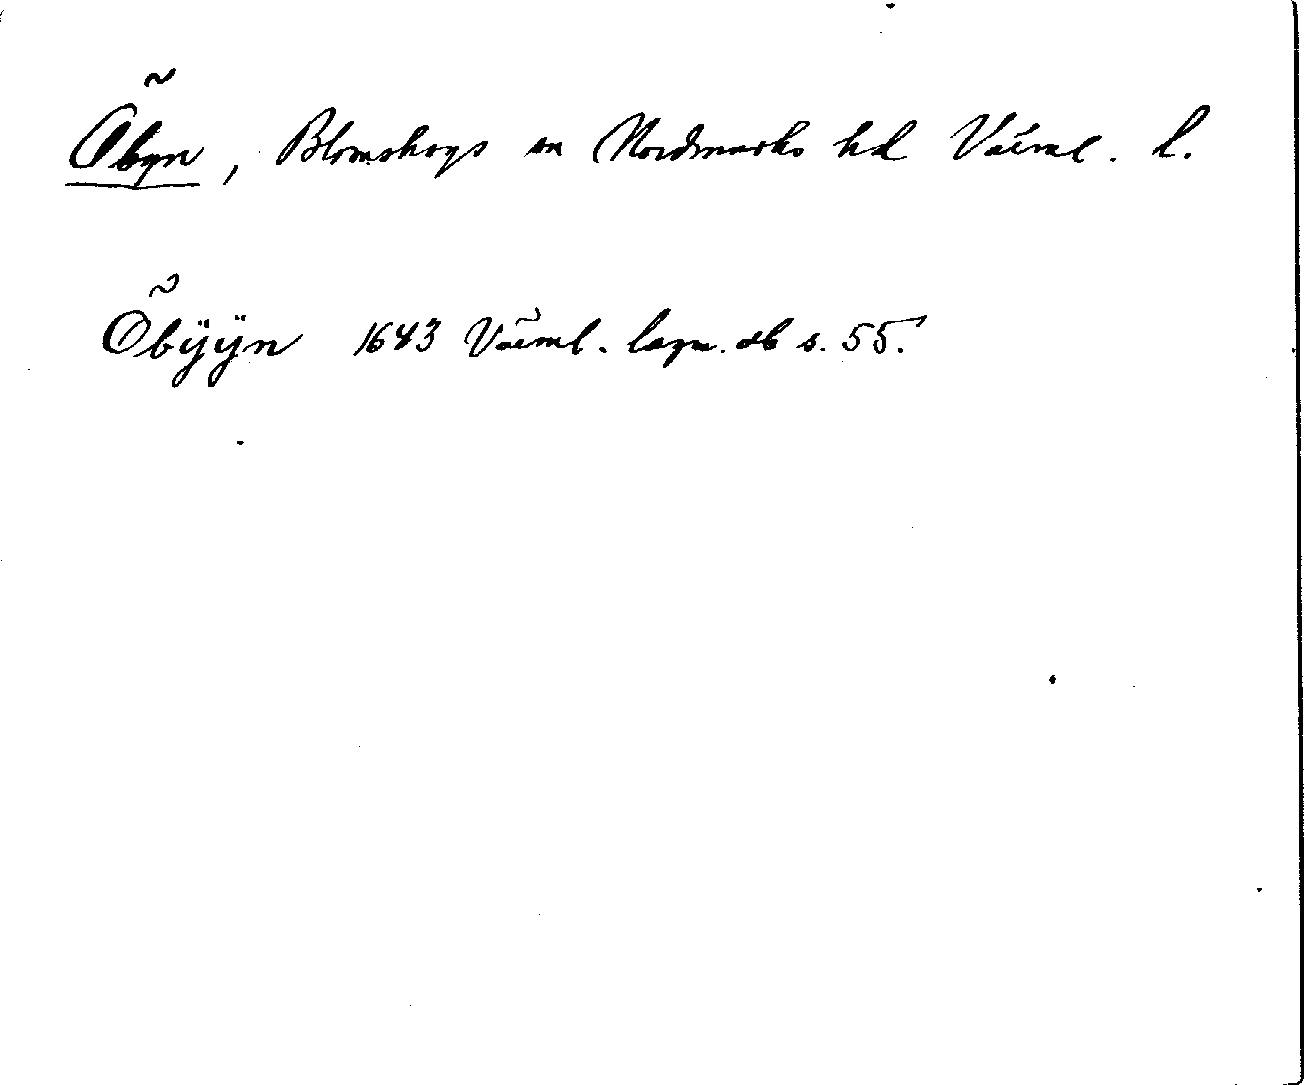 Öbyn, Blomskogs sn Nordmarks hd Värml. l.
Öbÿÿn 1643 Värml. lagm. db s. 55.